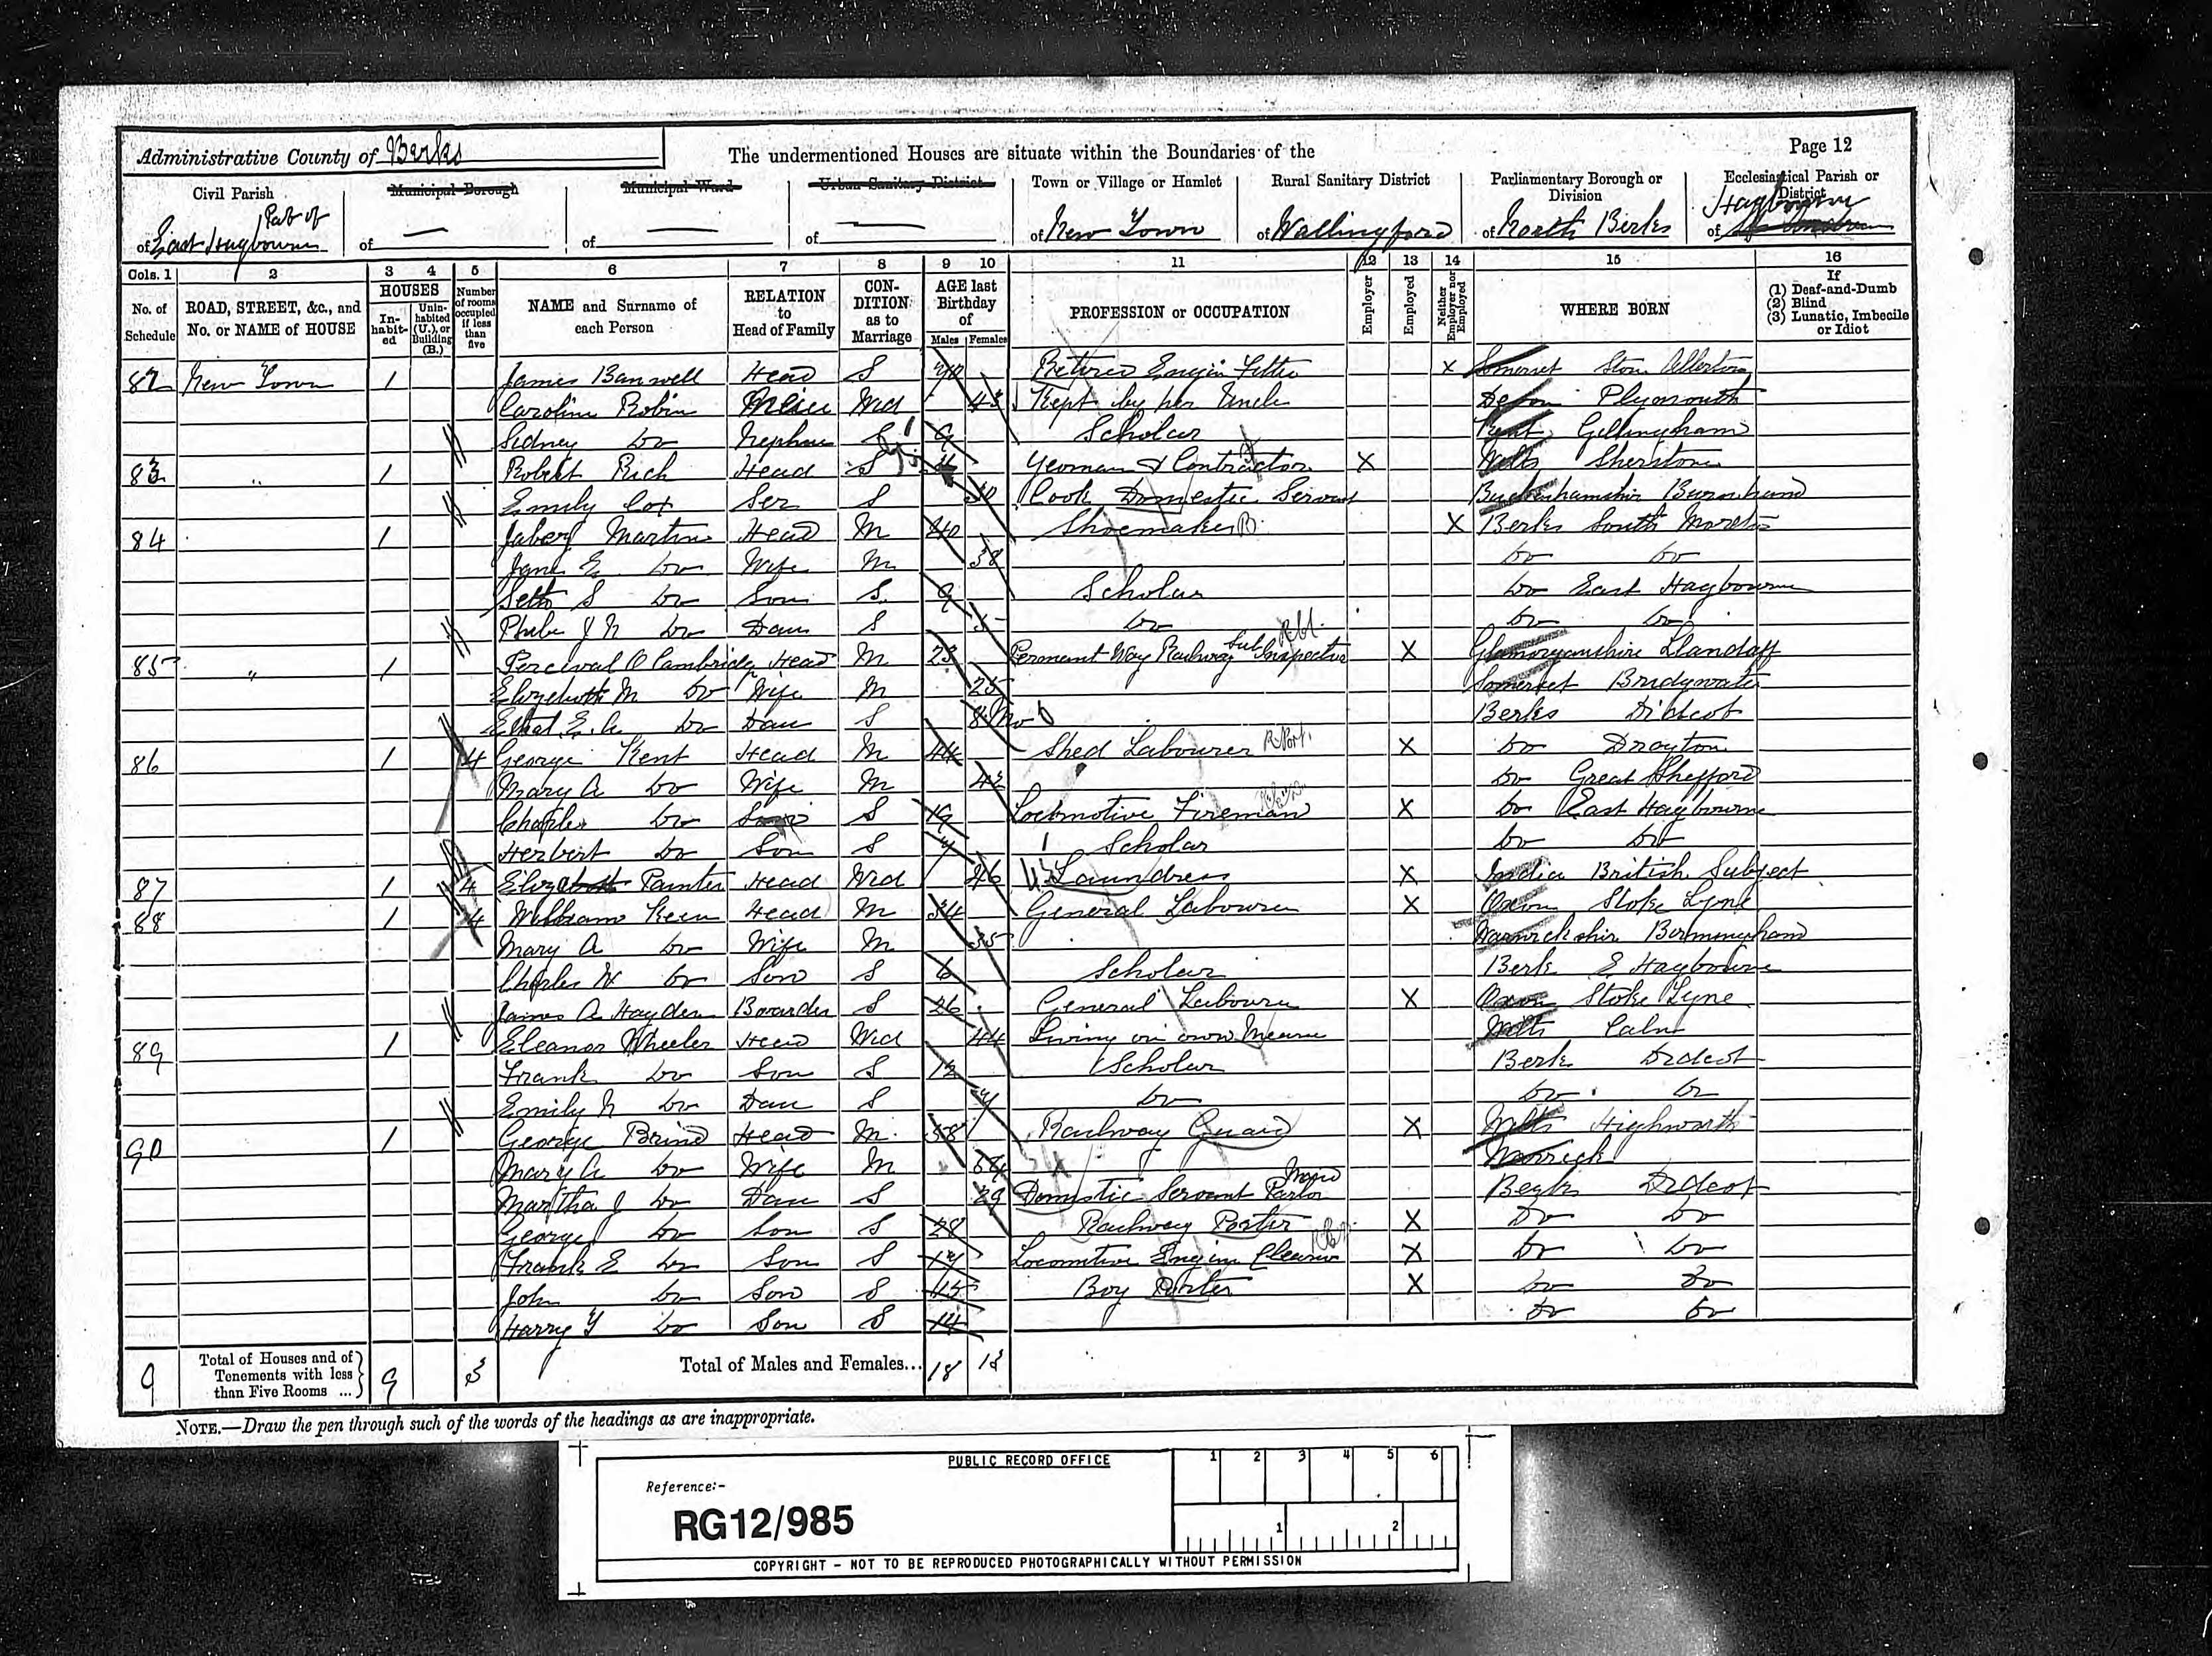 Administrative County of Berks
The undermentioned Houses are situate within the Boundaries of the
Page 12
Civil Parish
Municipal Borough
Municipal Ward
Urban Sanitary District
Town or Village or Hamlet
Rural Sanitary District
Parliamentary Borough or Division
Ecclesiastical Parish or District
Part of
of East Hagbourne of — of — of — of New Town of Wallingford of North Berks of Hagbourne
Cols. 1 2 3 4 5 6 7 8 9 10 11 12 13 14 15 16
No. of Schedule
ROAD, STREET, &c., and No. or NAME of HOUSE
HOUSES
In-habit-ed
Unin-habited (U.), or Building (B.)
Number of rooms occupied if less than five
NAME and Surname of each Person
RELATION to Head of Family
CON-DITION as to Marriage
AGE last Birthday of
Males Females
PROFESSION or OCCUPATION
Employer
Employed
Neither Employer nor Employed
WHERE BORN
If
(1) Deaf-and-Dumb
(2) Blind
(3) Lunatic, Imbecile or Idiot
82 New Town 1 James Banwell Head S Retired Engin Fitter X Somerset Ston Allerton
Caroline Robin Niece Wid 43 Kept by her Uncle Devon Plymouth
Sidney Do Nephew S 9 Scholar Kent Gillingham
83 " 1 Robert Rich Head S Yeoman & Contractor X Wilts Sherston
Emily Cox Ser S Cook Domestic Servant Buckinhamshir Burnham
84 1 Jabez Martin Head M 40 Shoemaker X Berks South Moreton
Jane E Do Wife M 38 Do Do
Seth S Do Son S 9 Scholar Do East Hagbourne
Phebe J N Do Dau S 5 Do Do Do
85 " 1 Percival O Cambridge Head M 23 Permant Way Railway Sub Inspector X Glamorganshire Llandaff
Elizabeth M Do Wife M 25 Somerset Bridgwater
Ethel E. A Do Dau S 8 Mo Berks Didcot
86 1 4 George Kent Head M 44 Shed Labourer X Do Drayton
Mary A Do Wife M 42 Do Great Shefford
Charles Do Son S 19 Locomotive Fireman X Do East Hagbourne
Herbert Do Son S 7 Scholar Do Do
87 1 4 Eliza Painter Head Wid Laundress X India British Subject
88 1 4 William Keen Head M 34 General Labourer X Oxon Stoke Lyne
Mary A Do Wife M 35 Warwickshir Birmingham
Charles W Do Son S 6 Scholar Berk E Hagbourne
James A Hayden Boarder S 26 General Labourer X Oxon Stoke Lyne
89 1 Eleanor Wheeler Head Wid 44 Living on own Means Wilts Calne
Frank Do Son S 12 Scholar Berk Didcot
Emily N Do Dau S 7 Do Do Do
90 1 George Brind Head M 58 Railway Guard X Wilts Highworth
Mary A Do Wife M Warwick
Martha J Do Dau S 29 Domstic Servant Parlor Maid Berks Didcot
George Do Son S 28 Railway Porter X Do Do
Frank E Do Son S 17 Locomotive Engin Cleaner X Do Do
John Do Son S 15 Boy Porter X Do Do
Harry G Do Son S 14 Do Do
9 Total of Houses and of Tenements with less than Five Rooms ... 9 3 Total of Males and Females... 18 13
NOTE.—Draw the pen through such of the words of the headings as are inappropriate.
PUBLIC RECORD OFFICE
1 2 3 4 5 6
Reference:-
RG12/985
1 2
COPYRIGHT - NOT TO BE REPRODUCED PHOTOGRAPHICALLY WITHOUT PERMISSION